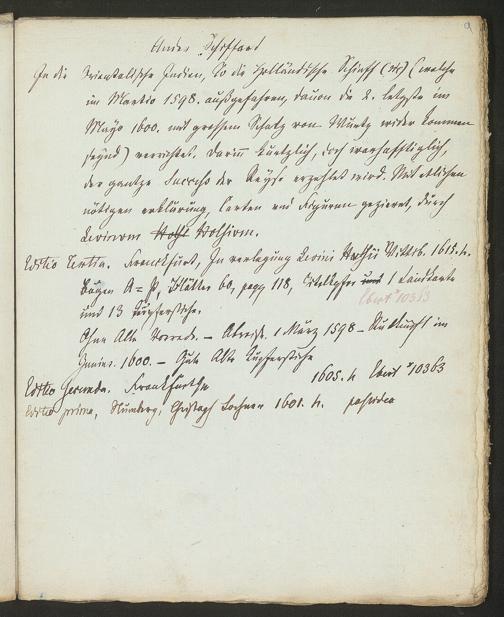 9
Ander Schiffart
In die Orientalische Indien, So die Holländische Schieff (sic) (welche
im Martio 1598. außgefahren, dauon die 2. letzste im
Mayo 1600. mit grossem Schatz von Wurtz wider kommen
seynd) verrichtet. Darinn kürtzlich, doch warhafftiglich,
der gantze Successs der Reyse erzehlet wird. Mit etlichen
nötigen erklärung, Carten und Figuren gezieret, durch
Levinum Hulsium.
Editio Tertia. Franckfurt, In verlegung Levini Hulsii Wittib. 1615. 4.
Bogen A–P, Blätter 60, pagg 118, Titelkpfer und 1 Landkarte
Ebert 10363
und 13 Kupferstiche.
Ohne Alte Vorrede. – Abreise 1 März 1598 – Ankunft im
Junius. 1600. – Gute Alte Kupferstiche
Editio Secunda. Frankfurth 1605. 4 Ebert 10363
Editio prima, Nürnberg, Christoph Lochner 1601. 4.